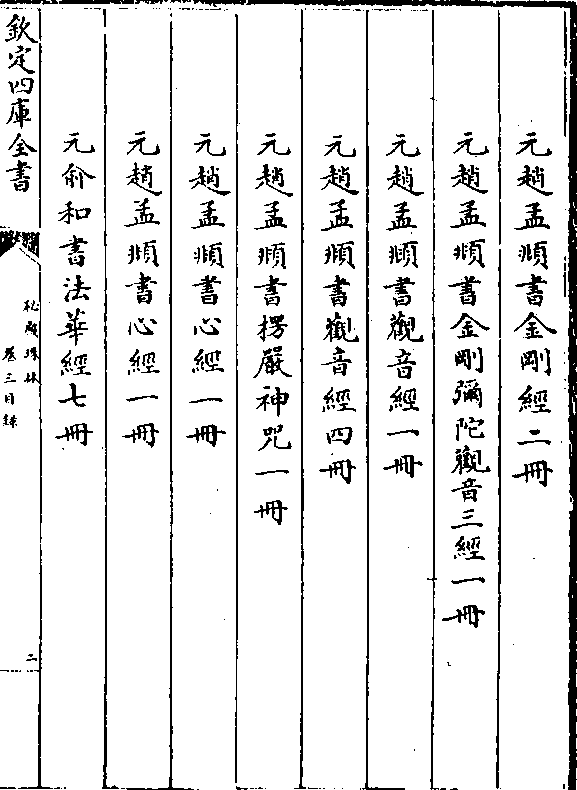 元趙孟頫書金剛經二冊
元趙孟頫書金剛彌陀觀音三經一冊
元趙孟頫書觀音經一冊
元趙孟頫書觀音經四冊
元趙孟頫書楞嚴神咒一冊
元趙孟頫書心經一冊
元趙孟頫書心經一冊
元俞和書法華經七冊
欽定四庫全書
秘殿珠林
卷三目錄
二